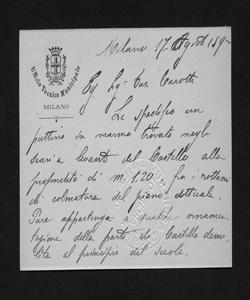 Ufficio Tecnico Municipale
MILANO
Milano 17 Agosto 189
Eg. Sigr Cav. Carotti
Le spedisco un
puttino in marmo trovato negli
scavi a levante del Castello alla
profondità di m. 1.20 fra i rottami
di colmatura del piano attuale.
Pare appartenga a qualche ornamen
tazione della parte di Castello demo
lita al principio del secolo.